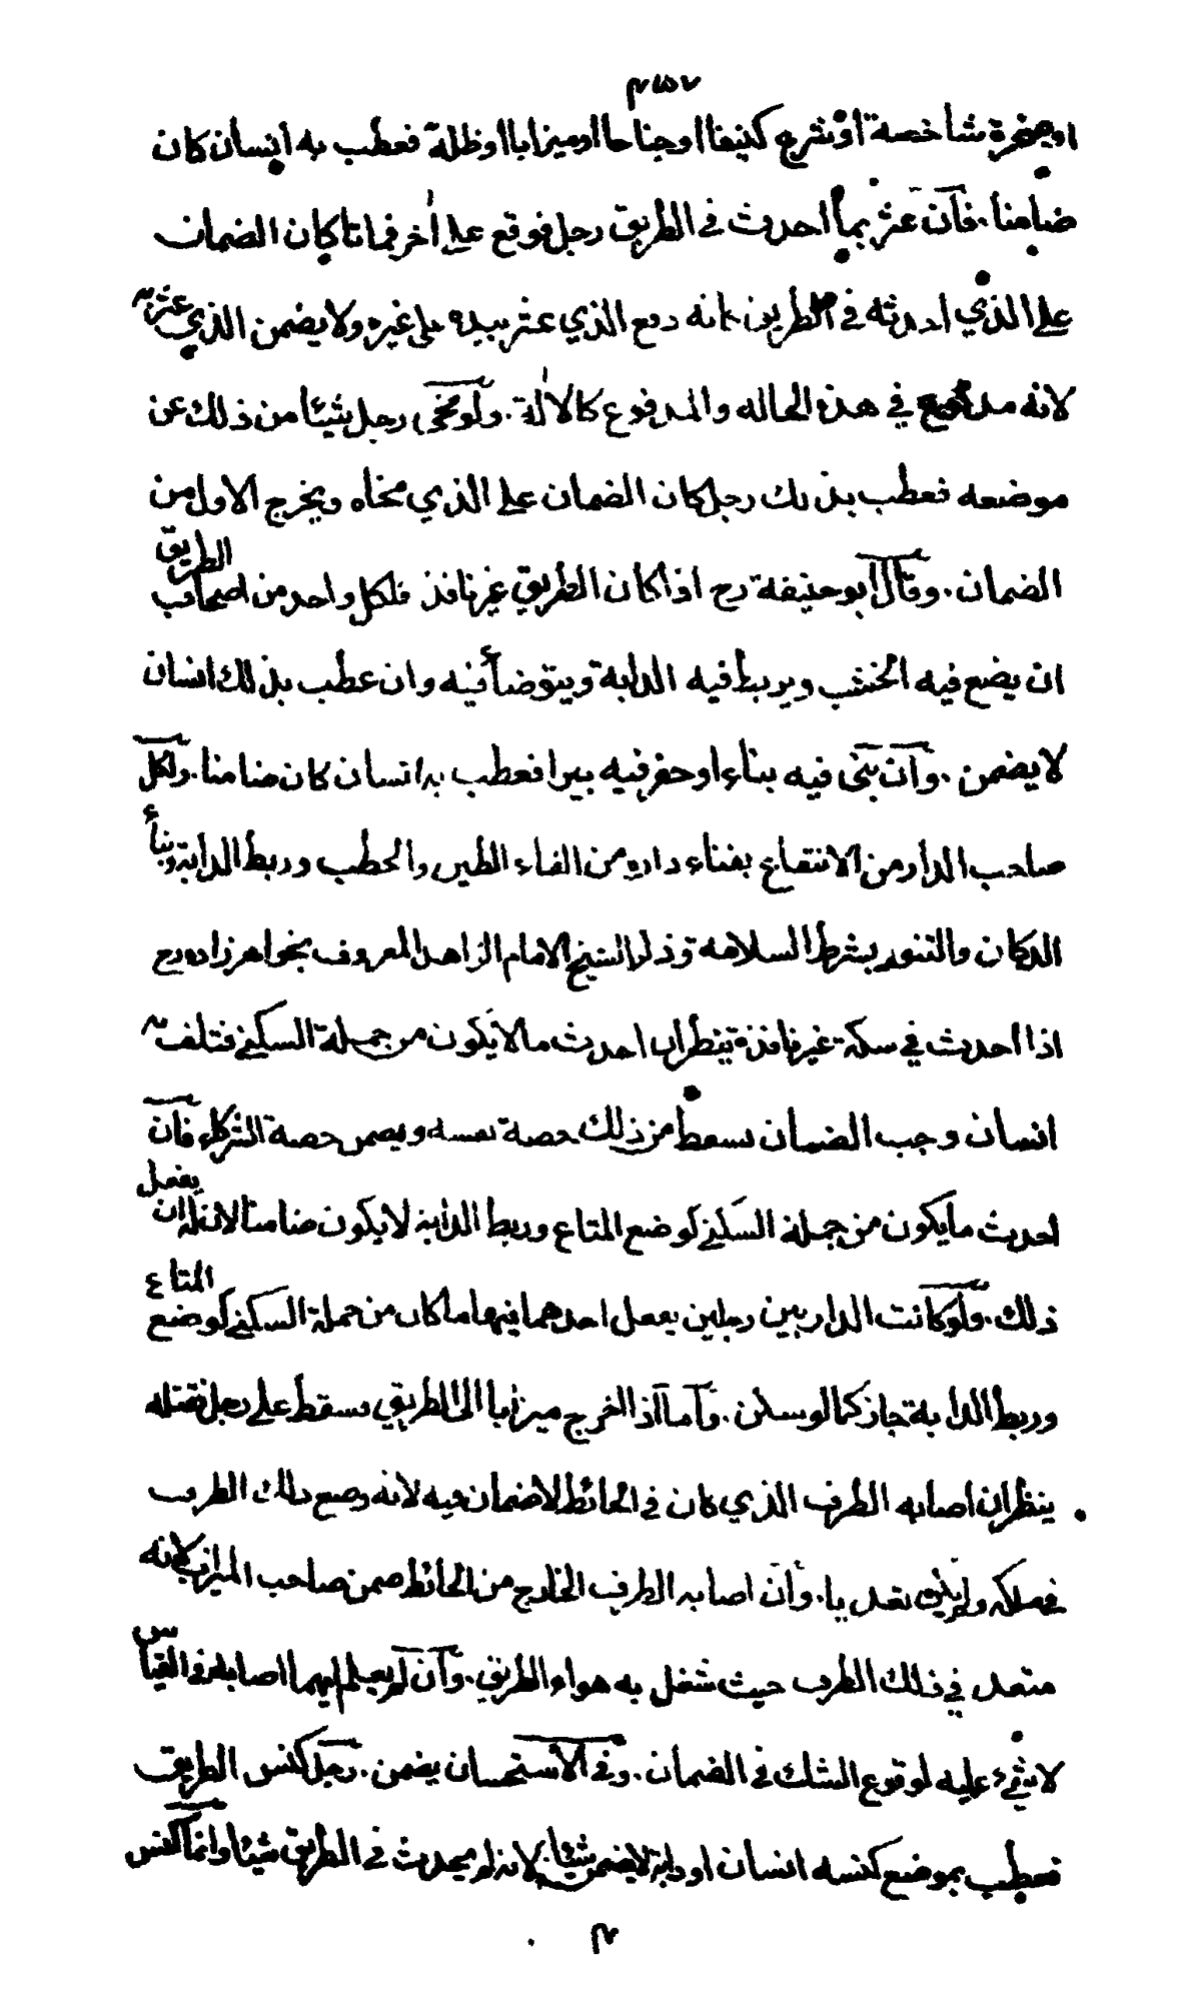 ٢٥٧
او صخرة شاخصة او شرع كنيفا او جناحا او ميزابا او ظلة فعطب به انسان كان
ضامنا. فان عثر بما احدث في الطريق رجل فوقع على اخر فماتا كان الضمان
على الذي احدثه في الطريق كانه دفع الذي عثر بيده على غيره ولا يضمن الذي عثر به
لانه مدفوع في هذه الحاله والمدفوع كالالة. ولو نحى رجل شيئا من ذلك عن
موضعه فعطب بذلك رجل كان الضمان على الذي نحاه ويخرج الاول من
الضمان. وقال ابو حنيفة رح اذا كان الطريق غير نافذ فلكل واحد من اصحاب الطريق
ان يضع فيه الخشب ويربط فيه الدابة ويتوضأ فيه وان عطب بذلك انسان
لا يضمن. وان بنى فيه بناء او حفر فيه بيرا فعطب به انسان كان ضامنا. ولكل
صاحب الدار من الانتفاع بفناء داره من القاء الطين والحطب وربط الدابة وبناء
الدكان والتنور بشرط السلامه وذكر الشيخ الامام الزاهد المعروف بخواهر زاده رح
اذا احدث في سكة غير نافذة ينظر ان احدث ما لا يكون من جملة السكنى فتلف به
انسان وجب الضمان يسقط من ذلك حصة نفسه ويضمن حصة الشركاء فان
احدث ما يكون من جملة السكنى كوضع المتاع وربط الدابة لا يكون ضامنا لان له ان يفعل
ذلك. ولو كانت الدار بين رجلين يفعل احدهما فيها ما كان من جملة السكنى كوضع المتاع
وربط الدابة جاز كما لو سكن. واما اذا اخرج ميزابا الى الطريق فسقط على رجل فقتله
ينظر ان اصابه الطرف الذي كان في الحائط لا ضمان فيه لانه وضع ذلك الطرف
في ملكه ولم يكن تعديا. وان اصابه الطرف الخارج من الحائط ضمن صاحب الميزاب لانه
متعد في ذلك الطرف حيث شغل به هواء الطريق. وان لم يعلم ايهما اصابه ففي القياس
لا شيء عليه لوقوع الشك في الضمان. وفي الاستحسان يضمن. رجل كنس الطريق
فعطب بموضع كنسه انسان او دابة لا يضمن شيئا لانه لم يحدث في الطريق شيئا وانما كنس